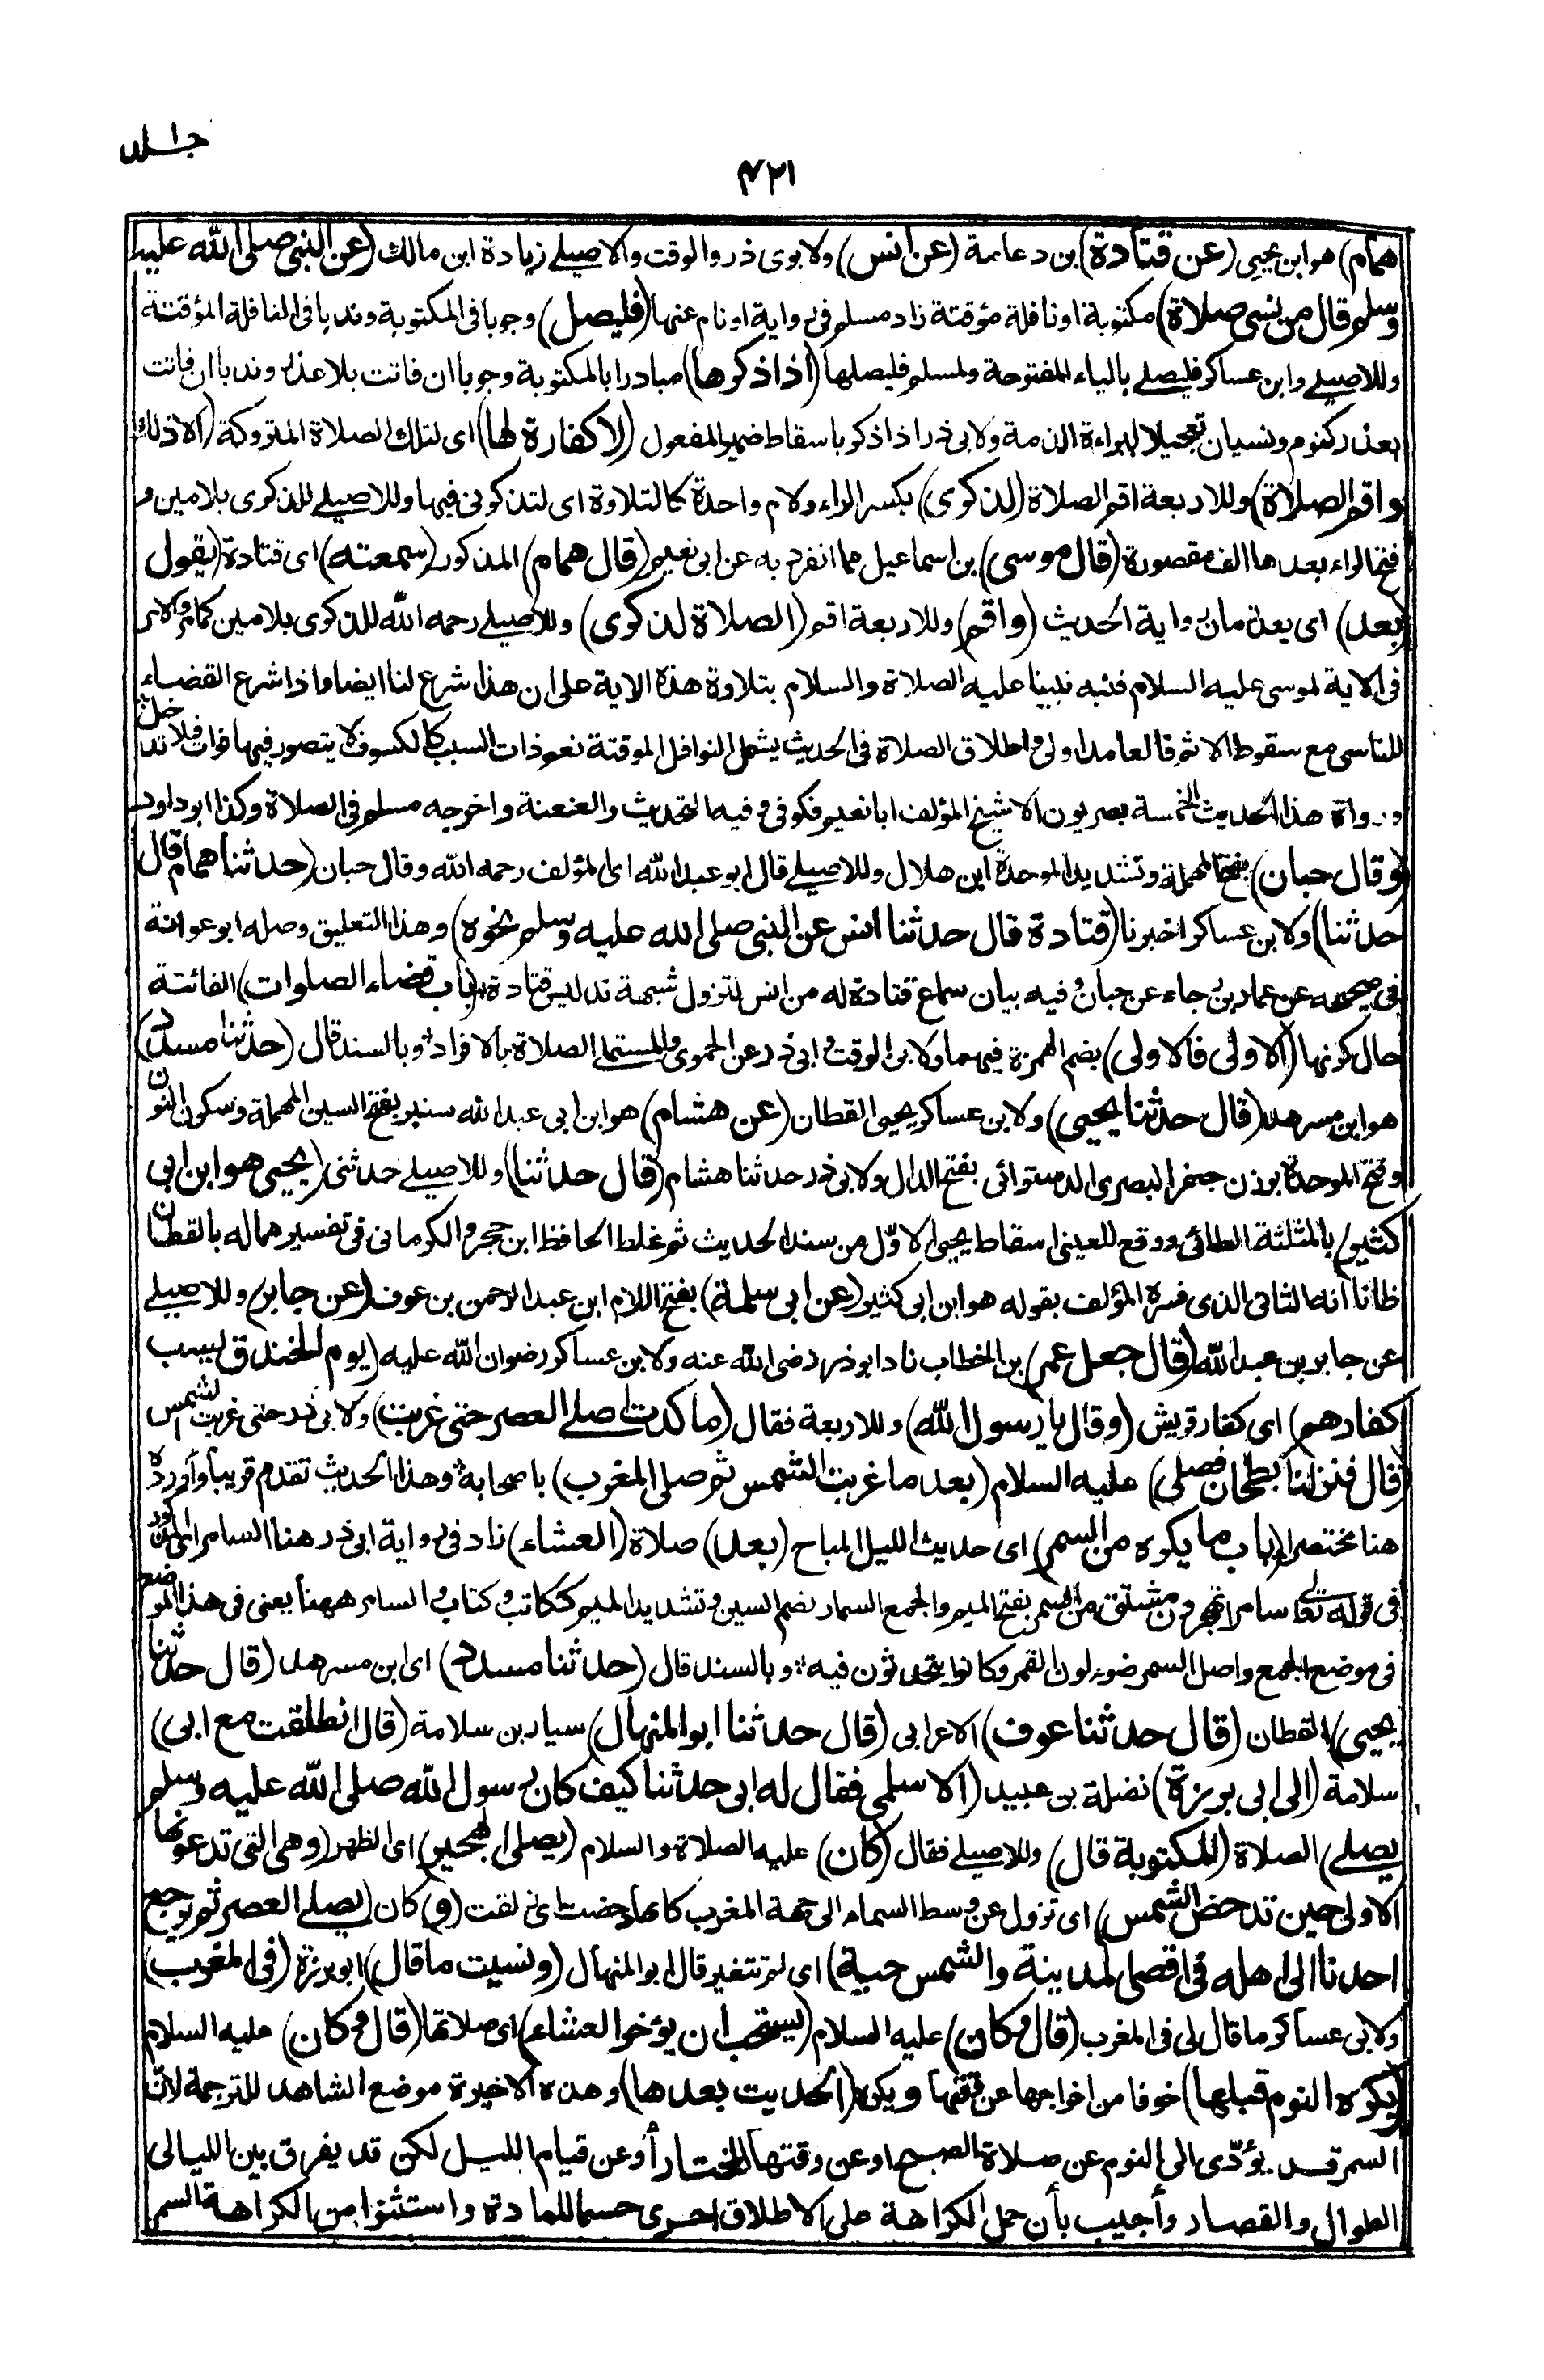 جلد ١
٤٢١
همام) هو ابن يحيى (عن قتادة) بن دعامة (عن انس) ولابوى ذر والوقت والاصيلى زيادة ابن مالك (عن النبى صلى الله عليه
وسلم قال من نسى صلاة) مكتوبة او نافلة مؤقتة زاد مسلم فى رواية او نام عنها (فليصل) وجوبا فى المكتوبة وندبا فى النافلة المؤقتة
وللاصيلى وابن عساكر فليصلى بالياء المفتوحة ولمسلم فليصلها (اذا ذكرها) مبادرا بالمكتوبة وجوبا ان فاتت بلا عذر وندبا ان فاتت
بعذر كنوم ونسيان تعجيلا لبراءة الذمة ولابى ذر اذا ذكر باسقاط ضمير المفعول (لا كفارة لها) اى لتلك الصلاة المتروكة (الا ذلك
واقم الصلاة) وللاربعة اقم الصلاة (لذكرى) بكسر الراء ولام واحدة كالتلاوة اى لتذكرنى فيها وللاصيلى للذكرى بلامين و
فتح الراء بعدها الف مقصورة (قال موسى) بن اسماعيل مما انفرد به عن ابى نعيم (قال همام) المذكور (سمعته) اى قتادة (يقول
بعد) اى بعد زمان رواية الحديث (واقم) وللاربعة اقم (الصلاة لذكرى) وللاصيلى رحمه الله للذكرى بلامين كمامر والامر
فى الاية لموسى عليه السلام فنبه نبينا عليه الصلاة والسلام بتلاوة هذه الاية على ان هذا شرع لنا ايضا واذا شرع القضاء
للناسى مع سقوط الاثم فالعامد اولى و اطلاق الصلاة فى الحديث يشمل النوافل الموقتة نعم ذات السبب كالكسوف لا يتصور فيها فوات فلا تدخل
ورواة هذا الحديث الخمسة بصريون الا شيخ المؤلف ابا نعيم فكوفى وفيه التحديث والعنعنة واخرجه مسلم فى الصلاة وكذا ابو داود
(وقال حبان) بفتح المهملة وتشديد الموحدة ابن هلال وللاصيلى قال ابو عبد الله اى المؤلف رحمه الله وقال حبان (حدثنا همام قال
حدثنا) ولابن عساكر اخبرنا (قتادة قال حدثنا انس عن النبى صلى الله عليه وسلم نحوه) وهذا التعليق وصله ابو عوانة
فى صحيحه عن عمار بن رجاء عن حبان وفيه بيان سماع قتادة له من انس لتزول شبهة تدليس قتادة (باب قضاء الصلوات) الفائتة
حال كونها (الاولى فالاولى) بضم الهمزة فيهما ولابى الوقت وابى ذر عن الحموى والمستملى الصلاة بالافراد وبالسند قال (حدثنا مسدد)
هو ابن مسرهد (قال حدثنا يحيى) ولابن عساكر يحيى القطان (عن هشام) هو ابن ابى عبد الله سنبر بفتح السين المهملة وسكون النون
وفتح الموحدة بوزن جعفر البصرى الدستوائى بفتح الدال ولابى ذر حدثنا هشام (قال حدثنا) وللاصيلى حدثنى (يحيى هو ابن ابى
كثير) بالمثلثة الطائى ووقع للعينى اسقاط يحيى الاول من سند الحديث ثم غلط الحافظ ابن حجر والكرمانى فى تفسيرهما له بالقطان
ظانا انه الثانى الذى فسره المؤلف بقوله هو ابن ابى كثير (عن ابى سلمة) بفتح اللام ابن عبد الرحمن بن عوف (عن جابر) وللاصيلى
عن جابر بن عبد الله (قال جعل عمر) بن الخطاب زاد ابو ذر رضى الله عنه ولابن عساكر رضوان الله عليه (يوم الخندق يسب
كفارهم) اى كفار قريش (وقال يا رسول الله) وللاربعة فقال (ما كدت اصلى العصر حتى غربت) ولابى ذر حتى غربت الشمس
(قال فنزلنا بطحان فصلى) عليه السلام (بعد ما غربت الشمس ثم صلى المغرب) باصحابه وهذا الحديث تقدم قريبا وأورده
هنا مختصرا (باب ما يكره من السمر) اى حديث الليل المباح (بعد) صلاة (العشاء) زاد فى رواية ابى ذر هنا السامر اى المذكور
فى قوله تعالى سامرا تهجرون مشتق من السمر بفتح الميم والجمع السمار بضم السين وتشديد الميم ككاتب وكتاب و السامر ههنا يعنى فى هذا الموضع
فى موضع الجمع واصل السمر ضوء لون القمر وكانوا يتحدثون فيه وبالسند قال (حدثنا مسدد) اى ابن مسرهد (قال حدثنا
يحيى) القطان (قال حدثنا عوف) الاعرابى (قال حدثنا ابو المنهال) سيار بن سلامة (قال انطلقت مع ابى)
سلامة (الى ابى برزة) نضلة بن عبيد (الاسلمى فقال له ابى حدثنا كيف كان رسول الله صلى الله عليه وسلم
يصلى) الصلاة (المكتوبة قال) وللاصيلى فقال (كان) عليه الصلاة والسلام (يصلى الهجير) اى الظهر (وهى التى تدعونها
الاولى حين تدحض الشمس) اى تزول عن وسط السماء الى جهة المغرب كانها دحضت اى زلقت (و) كان (يصلى العصر ثم يرجع
احدنا الى اهله فى اقصى المدينة والشمس حية) اى لم تتغير قال ابو المنهال (ونسيت ما قال) ابو برزة (فى المغرب)
ولابى عساكر ما قال لى فى المغرب (قال وكان) عليه السلام (يستحب ان يؤخر العشاء) اى صلاتها (قال وكان) عليه السلام
(يكره النوم قبلها) خوفا من اخراجها عن وقتها ويكره (الحديث بعدها) وهذه الاخيرة موضع الشاهد للترجمة لأن
السمر قد يؤدّى الى النوم عن صلاة الصبح او عن وقتها المختار أو عن قيام الليل لكن قد يفرق بين الليالى
الطوال والقصار وأجيب بأن حمل الكراهة على الاطلاق احرى حسما للمادة واستثنوا من الكراهة السمر